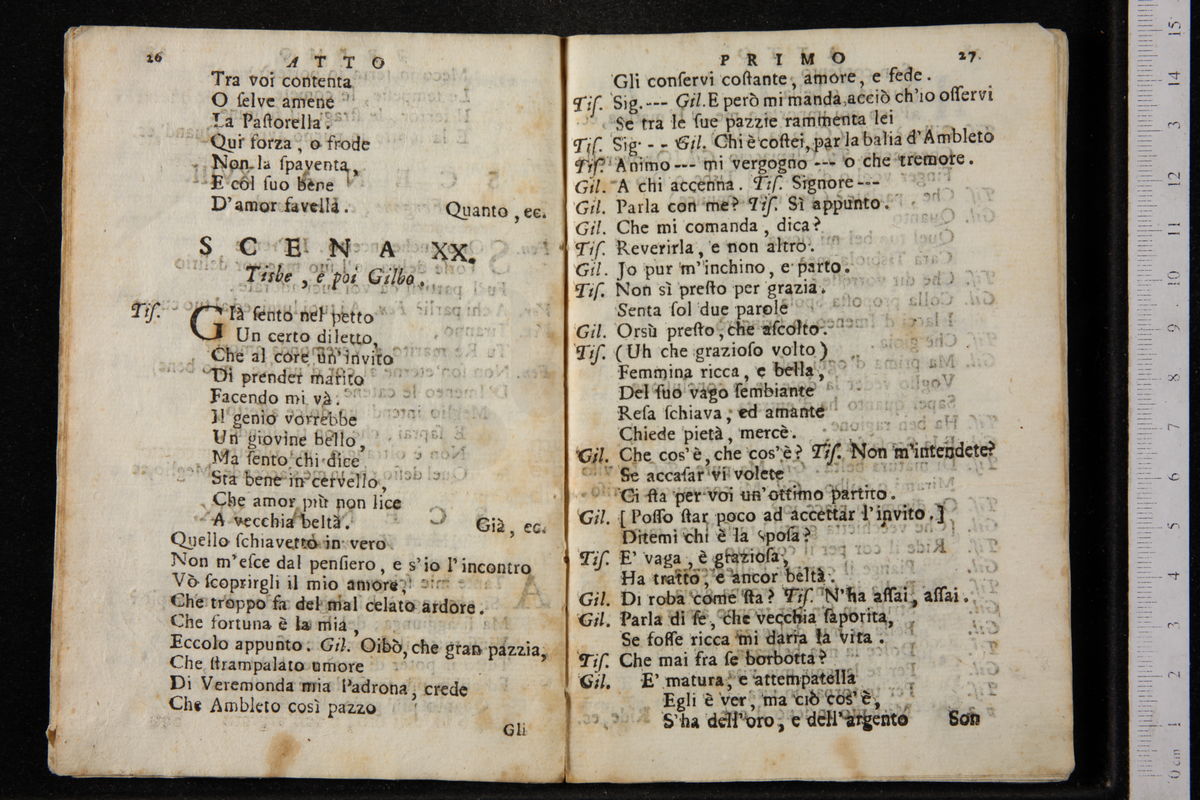 26
ATTO
Tra voi contenta
O ſelve amene
La Paſtorella.
Qui forza, o frode
Non la ſpaventa,
E col ſuo bene
D'amor favella. Quanto, ec.
SCENA XX.
Tisbe, e poi Gilbo.
Tiſ. Già ſento nel petto
Un certo diletto,
Che al core un'invito
Di prender marito
Facendo mi và.
Il genio vorrebbe
Un giovine bello,
Ma ſento chi dice
Sta bene in cervello,
Che amor più non lice
A vecchia beltà. Già, ec.
Quello ſchiavetto in vero
Non m'eſce dal penſiero, e s'io l'incontro
Vò ſcoprirgli il mio amore,
Che troppo fa del mal celato ardore.
Che fortuna è la mia,
Eccolo appunto. Gil. Oibò, che gran pazzia,
Che ſtrampalato umore
Di Veremonda mia Padrona, crede
Che Ambleto così pazzo
Gli
PRIMO
27.
Gli conſervi coſtante, amore, e fede.
Tiſ. Sig.--- Gil. E però mi manda acciò ch'io oſſervi
Se tra le ſue pazzie rammenta lei
Tiſ. Sig. - - Gil. Chi è coſtei, par la balia d'Ambleto
Tiſ. Animo --- mi vergogno --- o che tremore.
Gil. A chi accenna. Tiſ. Signore ---
Gil. Parla con me? Tiſ. Sì appunto.
Gil. Che mi comanda, dica?
Tiſ. Reverirla, e non altro.
Gil. Jo pur m'inchino, e parto.
Tiſ. Non sì preſto per grazia.
Senta ſol due parole
Gil. Orsù preſto, che aſcolto.
Tiſ. (Uh che grazioſo volto)
Femmina ricca, e bella,
Del ſuo vago ſembiante
Reſa ſchiava, ed amante
Chiede pietà, mercè.
Gil. Che cos'è, che cos'è? Tiſ. Non m'intendete?
Se accaſar vi volete
Ci ſta per voi un'ottimo partito.
Gil. [Poſſo ſtar poco ad accettar l'invito.]
Ditemi chi è la ſpoſa?
Tiſ. E' vaga, è grazioſa,
Ha tratto, e ancor beltà.
Gil. Di roba come ſta? Tiſ. N'ha aſſai, aſſai.
Gil. Parla di ſe, che vecchia ſaporita,
Se foſſe ricca mi daria la vita.
Tiſ. Che mai fra ſe borbotta?
Gil. E' matura, e attempatella
Egli è ver, ma ciò cos'è,
S'ha dell'oro, e dell'argento Son
0 cm 1 2 3 4 5 6 7 8 9 10 11 12 3 14 15